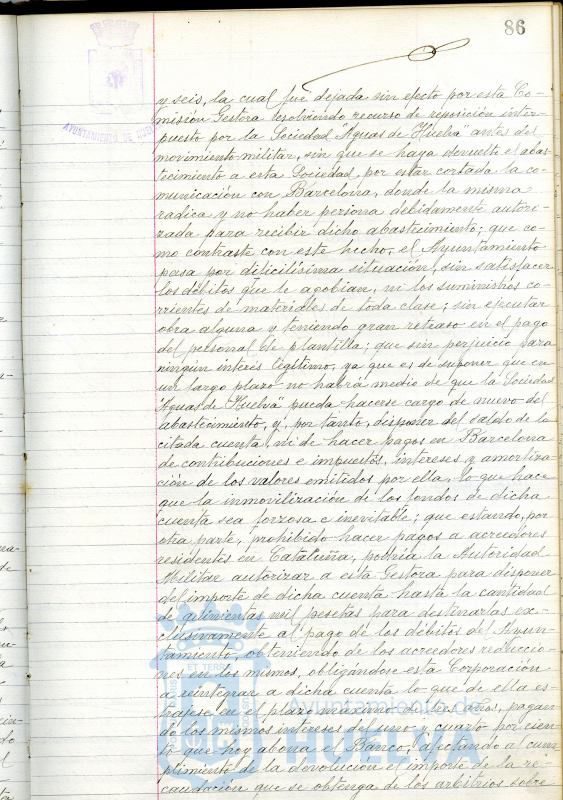 86
AYUNTAMIENTO DE HUELVA
y seis, la cual fué dejada sin efecto por esta Co-
misión Gestora resolviendo recurso de reposición inter-
puesto por la Sociedad "Aguas de Huelva" antes del
movimiento militar, sin que se haya devuelto el abas-
tecimiento a esta Sociedad, por estar cortada la co-
municación con Barcelona, donde la misma
radica y no haber persona debidamente autori-
zada para recibir dicho abastecimiento; que co-
mo contraste con este hecho, el Ayuntamiento
pasa por dificilísima situación, sin satisfacer
los débitos que le agobian, ni los suministros co-
rrientes de materiales de toda clase; sin ejecutar
obra alguna y teniendo gran retraso en el pago
del personal de plantilla; que sin perjuicio para
ningún interés legítimo, ya que es de suponer que en
un largo plazo no habrá medio de que la Sociedad
"Aguas de Huelva" pueda hacerse cargo de nuevo del
abastecimiento, y, por tanto, disponer del saldo de la
citada cuenta, ni de hacer pagos en Barcelona
de contribuciones e impuestos, intereses y amortiza-
ción de los valores emitidos por ella, lo que hace
que la inmovilización de los fondos de dicha
cuenta sea forzosa e inevitable; que estando, por
otra parte, prohibido hacer pagos a acreedores
residentes en Cataluña, podría la Autoridad
Militar autorizar a esta Gestora para disponer
del importe de dicha cuenta hasta la cantidad
de quinientas mil pesetas para destinarlas ex-
clusivamente al pago de los débitos del Ayun-
tamiento, obteniendo de los acreedores reduccio-
nes en los mismos, obligándose esta Corporación
a reintegrar a dicha cuenta lo que de ella es-
trajese en el plazo máximo de tres años, pagan-
do los mismos intereses del uno y cuarto por cien-
to que hoy abona el Banco, afectando al cum-
plimiento de la devolución el importe de la re-
caudación que se obtenga de los arbitrios sobre